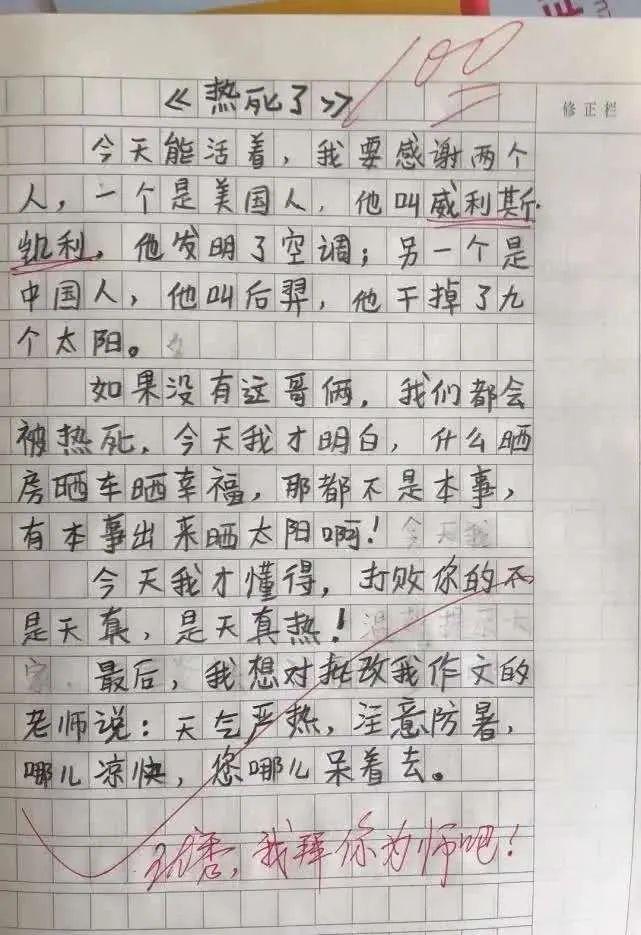 100
修正栏
《热死了》
今天能活着，我要感谢两个
人，一个是美国人，他叫威利斯·
凯利，他发明了空调；另一个是
中国人，他叫后羿，他干掉了九
个太阳。
如果没有这哥俩，我们都会
被热死，今天我才明白，什么晒
房晒车晒幸福，那都不是本事，
有本事出来晒太阳啊！
今天我才懂得，打败你的不
是天真，是天真热！
最后，我想对批改我作文的
老师说：天气严热，注意防暑，
哪儿凉快，您哪儿呆着去。
我拜你为师吧！